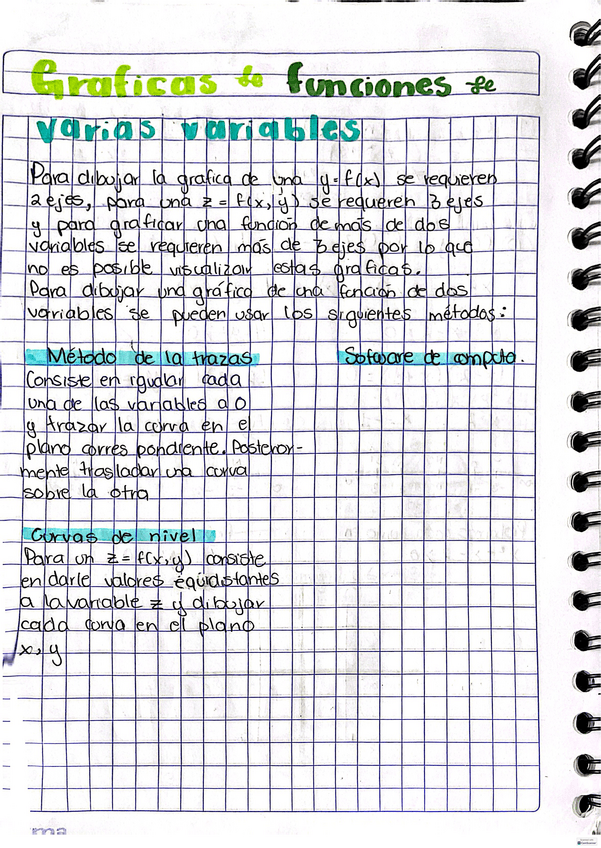 Graficas de funciones de
varias variables
Para dibujar la grafica de una y=f(x) se requieren
2 ejes, para una z = f(x, y) se requeren 3 ejes
y para graficar una función de más de dos
variables se requieren más de 3 ejes por lo que
no es posible visualizar estas graficas.
Para dibujar una gráfica de una función de dos
variables se pueden usar los siguientes métodos:
Método de la trazas
Consiste en igualar cada
una de las variables a 0
y trazar la curva en el
plano correspondiente. Posterior-
mente trasladar una curva
sobre la otra
Software de computo.
Curvas de nivel
Para un z = f(x,y) consiste
en darle valores equidistantes
a la variable z y dibujar
cada curva en el plano
x, y
ma